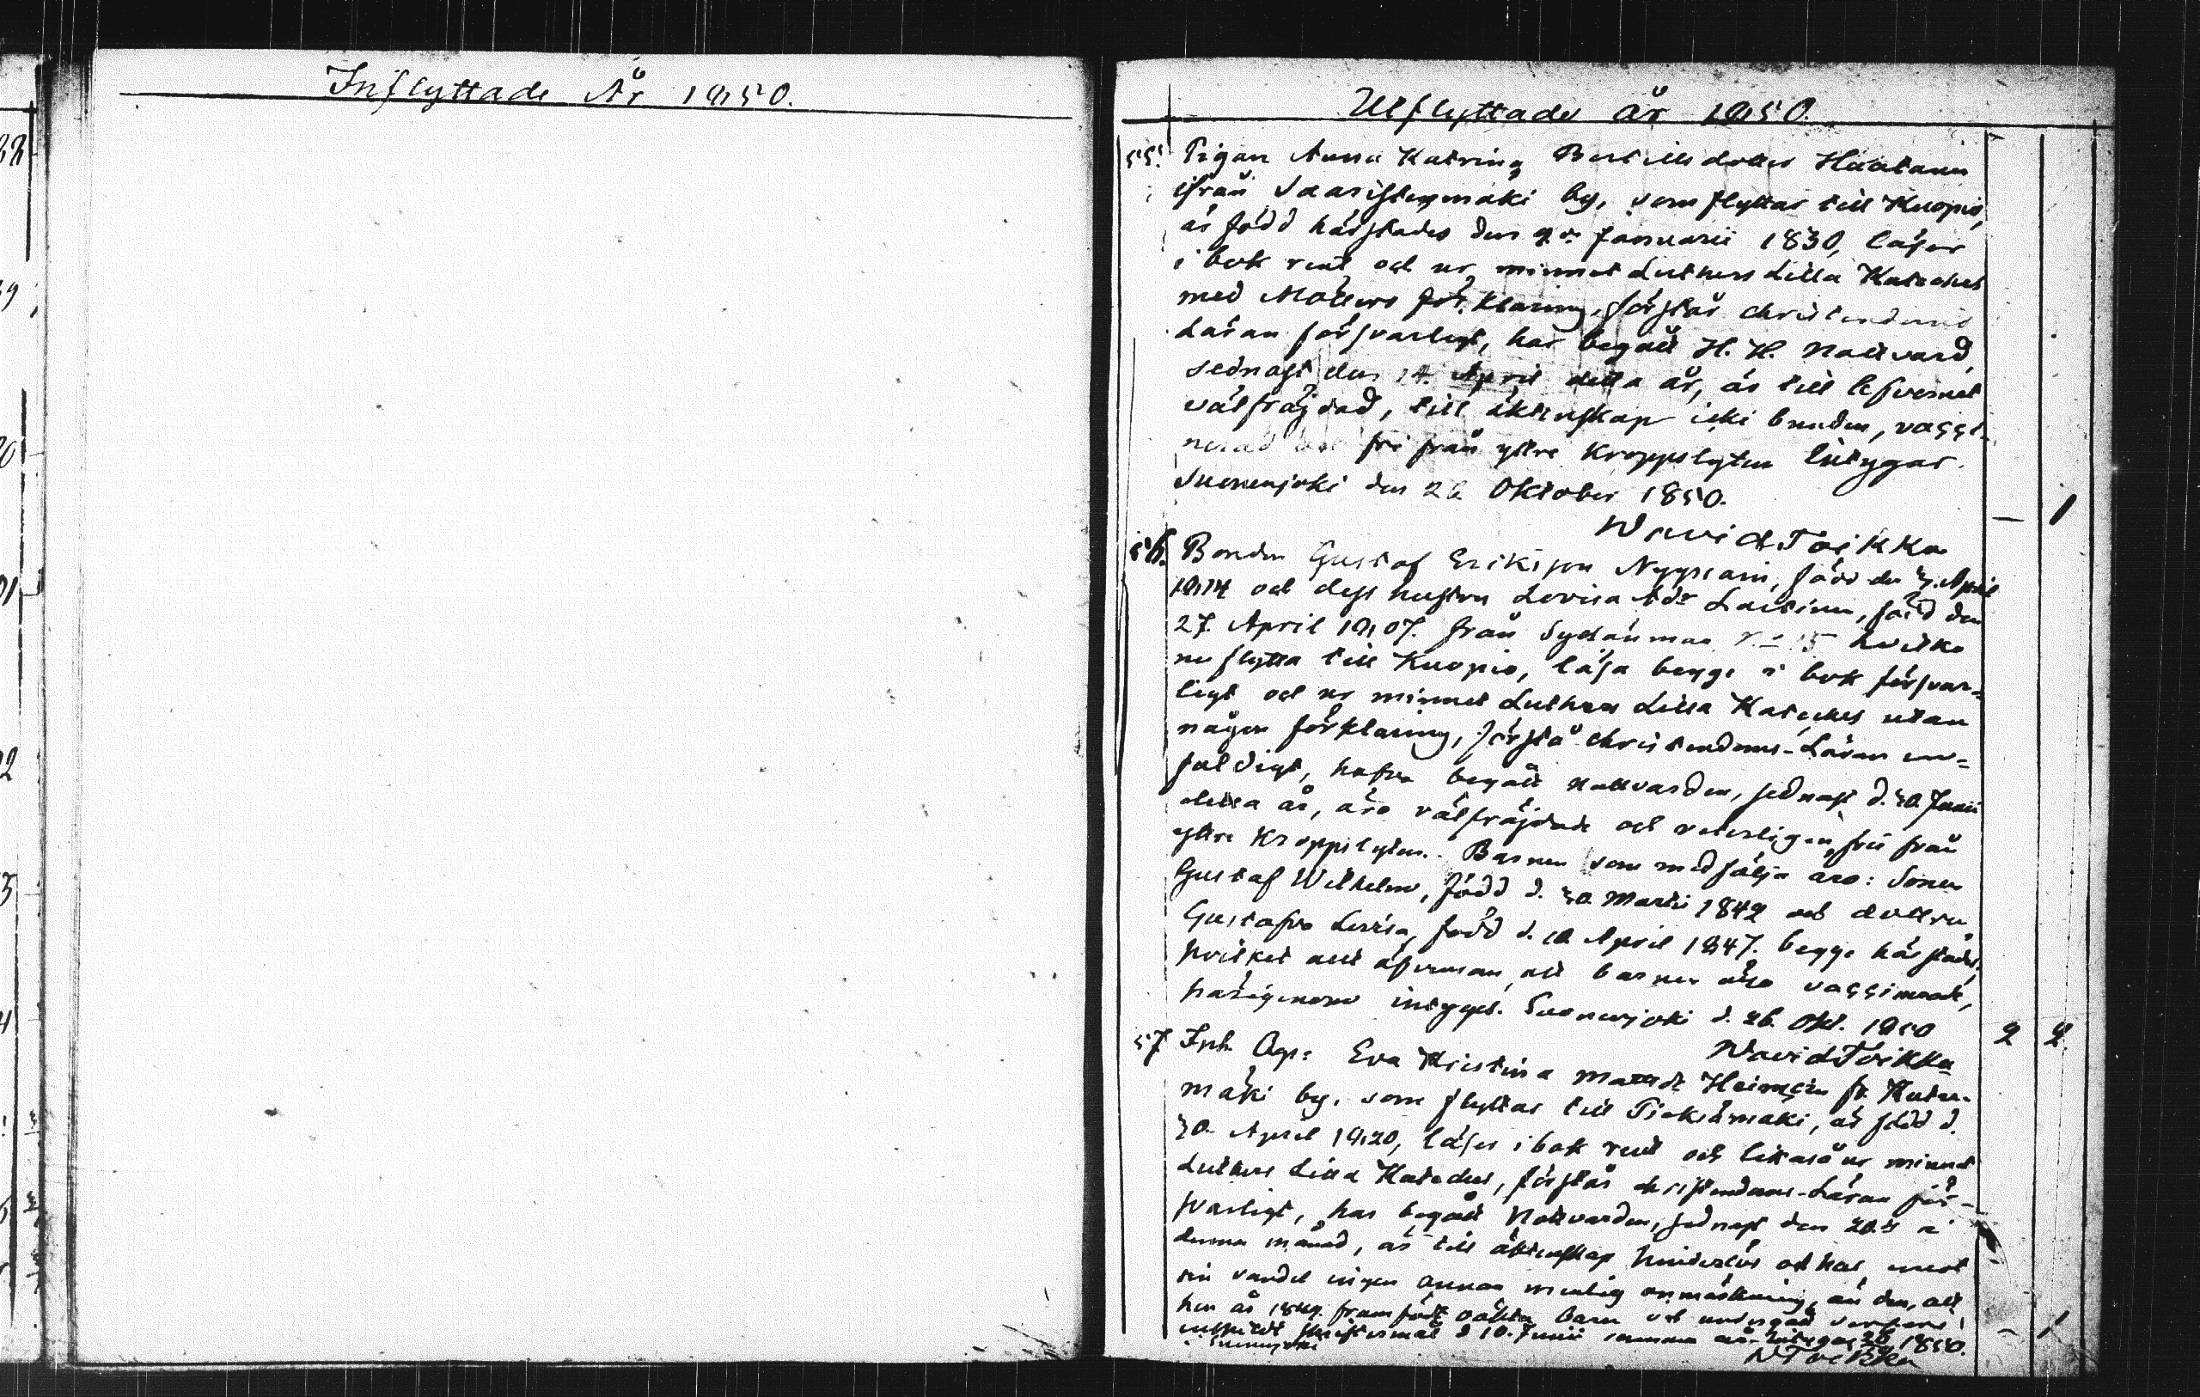 Inflyttade År 1850.
Utflyttade år 1850.
55. Pigan Anna Katrina Bertillsdotter Haatanen
ifrån Saaristenmäki by, som flyttar till Kuopio,
är född härstädes den Januarii 1830, läser
i bok rent och ur minnet Luthers Lilla Kateches
med Möllers förklaring, förstår christendoms
Läran försvarligt, har begått H. H. Nattvard
sednast den 14 April detta år, är till lefvernet
välfräjdad, till äktenskap icke bunden, vacci-
nerad och fri från yttre Kroppslyten Intygar.
Suonenjoki den 26 Oktober 1850.
Wavid Toikka
— 1
56. Bonden Gustaf Eriksson Nyyssöin, född den 7. April
1814 och dess hustru Lovisa Ad:r Laitinen, född den
27. April 1807. från Sydänmaa N:o 15 hvilka
nu flytta till Kuopio, läsa begge i bok försvar=
ligt och ur minnet Luthers Lilla Kateches utan
någon förklaring, förstå christendoms-Läran en=
faldigt, hafva begått nattvarden, sednast d. 30. Junii
detta år, äro välfräjdade och veterligen fri från
yttre Kroppslyten. Barnen som medfölja äro: Sonen
Gustaf Wilhelm, född d. 30. Martii 1842 och dottren
Gustafva Lovisa, född d. 10 April 1847. begge härstädes,
hvilket allt äfvensom, att barnen äro vaccinerade,
härigenom intygas. Suonenjoki d. 26. Okt. 1850
Wavid Toikka
2 2.
57 Inh. Qvp: Eva Kristina Matsdr Heimoin fr. Kutu-
mäki by, som flyttar till Pieksämäki, är född d.
30. April 1820, läser i bok rent och likaså ur minnet
Luthers Lilla Kateches, förstår christendoms-Läran för-
svarligt, har begått Nattvarden, sednast den 20. i
denna månad, är till äktenskap hinderlös och har emot
sin vandel ingen annan menlig anmärkning, än den, att
hon år 1849. framfödt oäkta barn och undergått derföre
enskildt skriftermål d 10. Junii samma år. Intygas 1850.
Suonenjoki
W Toikka
- 1